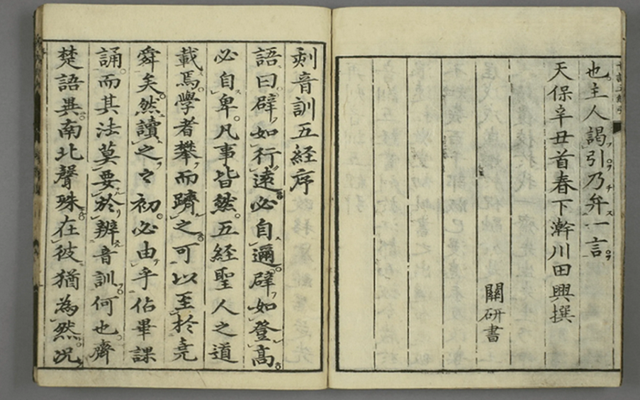 也主人謁引乃弁一言
天保辛丑首春下澣川田興撰
關研書
剌音訓五經序
語曰辟如行遠必自邇辟如登高
必自卑凡事皆然五經聖人之道
載焉學者攀而躋之可以至於堯
舜矣然讀之之初必由乎佔畢課
誦而其法莫要於辨音訓何也齊
楚語異南北聲殊在彼猶為然況